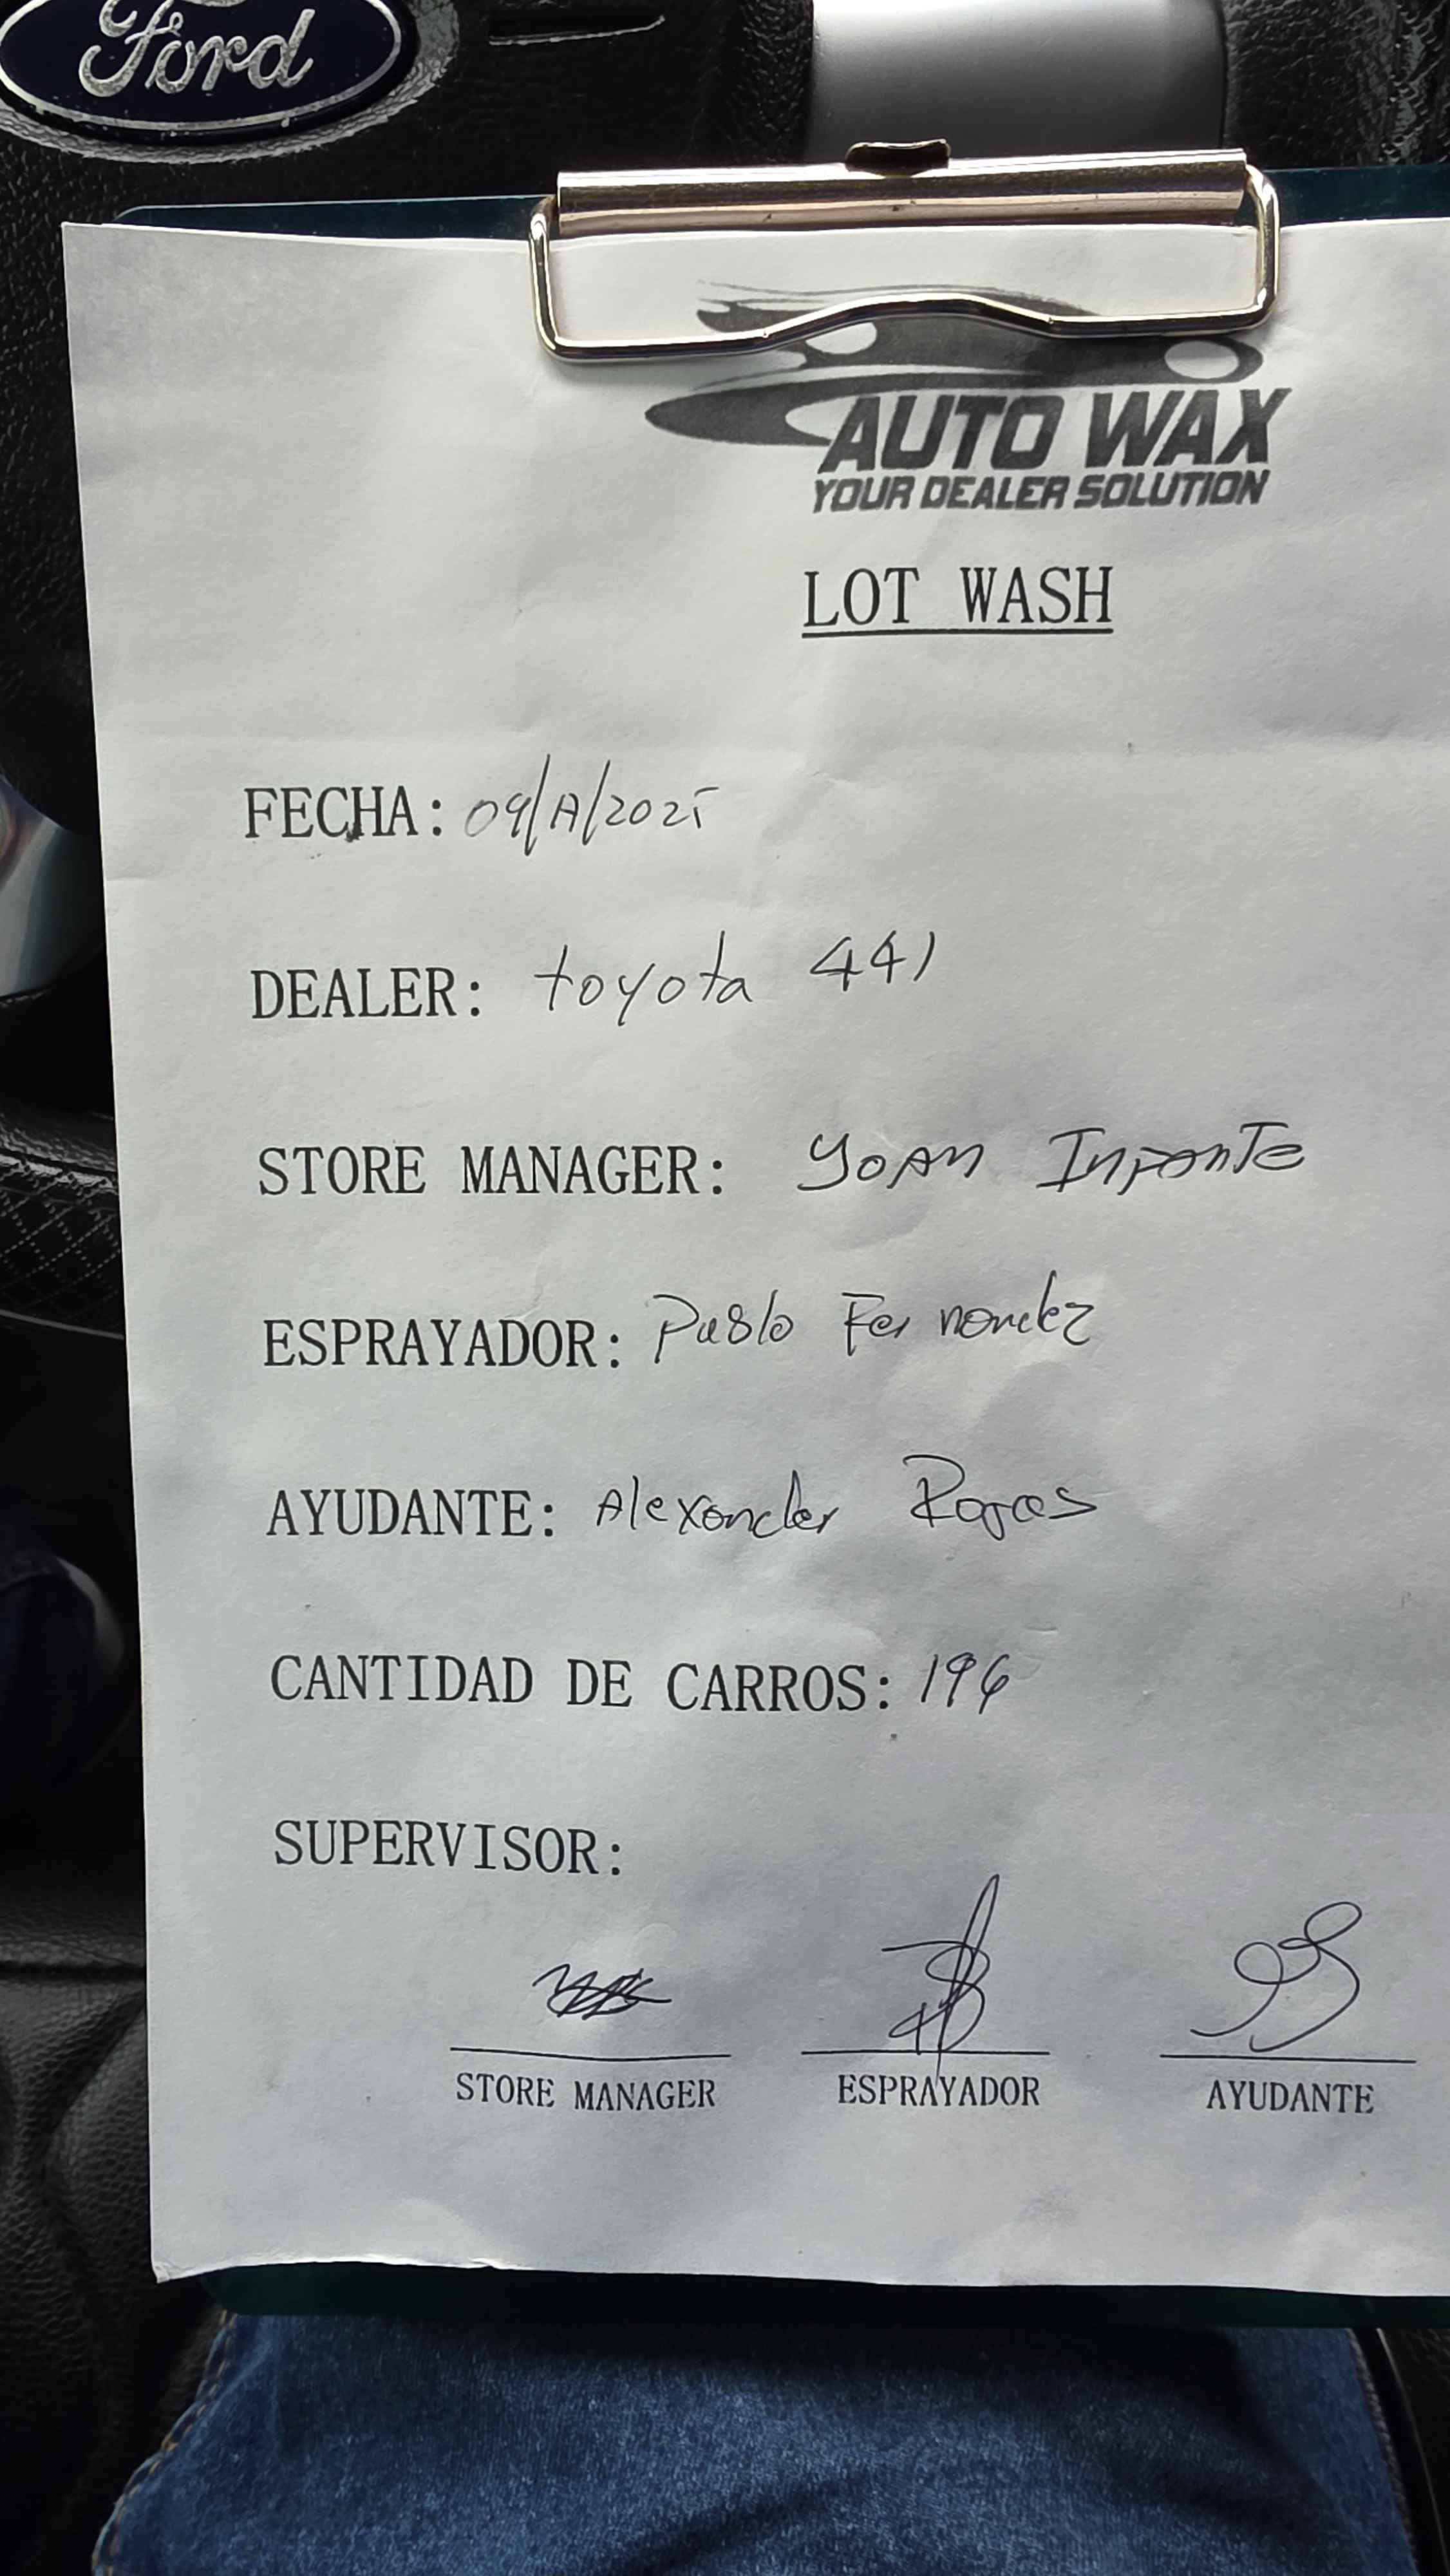 Ford
AUTO WAX
YOUR DEALER SOLUTION
LOT WASH
FECHA: 09/A/2025
DEALER: toyota 441
STORE MANAGER: Yoan Infante
ESPRAYADOR: Pablo Fernandez
AYUDANTE: Alexander Rojas
CANTIDAD DE CARROS: 196
SUPERVISOR:
STORE MANAGER ESPRAYADOR AYUDANTE